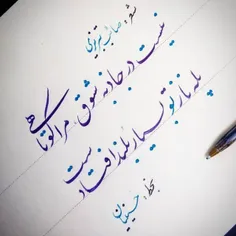 شعر: صائب تبریزی
نیست در جاذبه شوق مرا کوتاهی
پله ناز تو بسیار بلند افتاده ست
بخط: